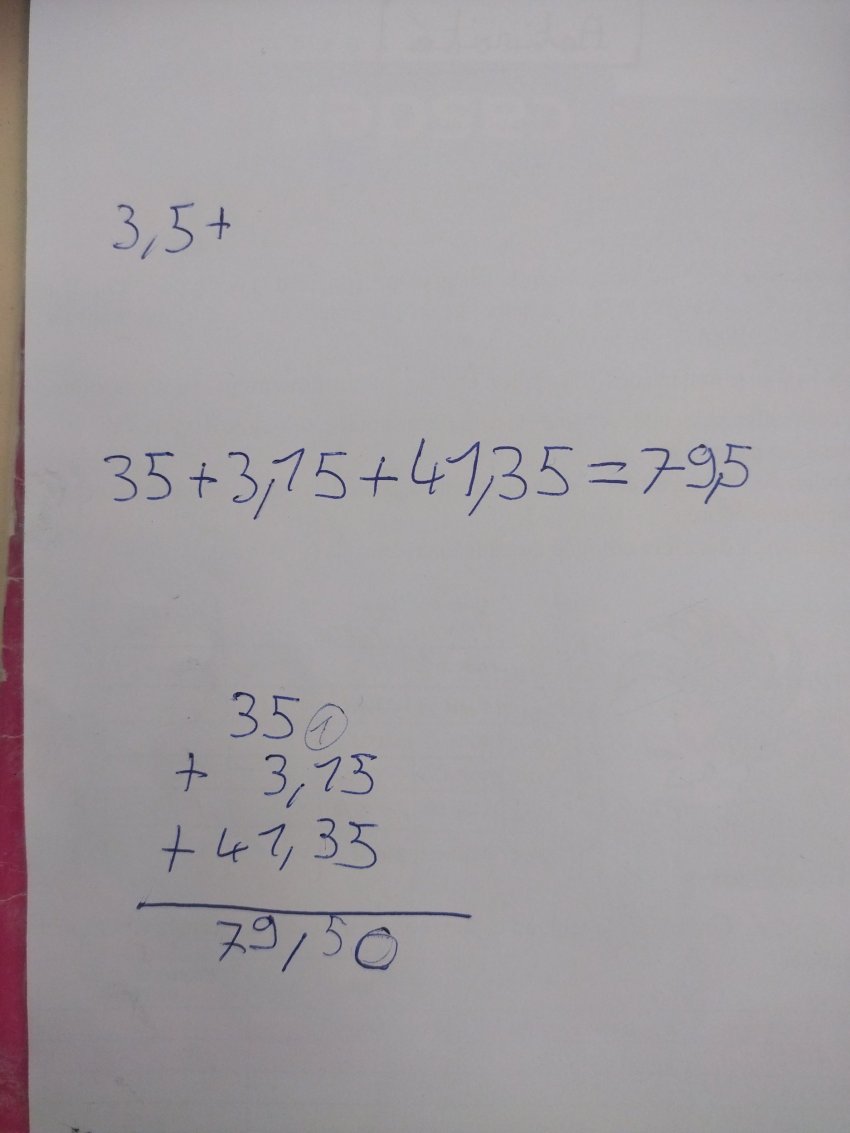 3,5+
35+3,15+41,35=79,5
35 1
+ 3,15
+ 41,35
79,50